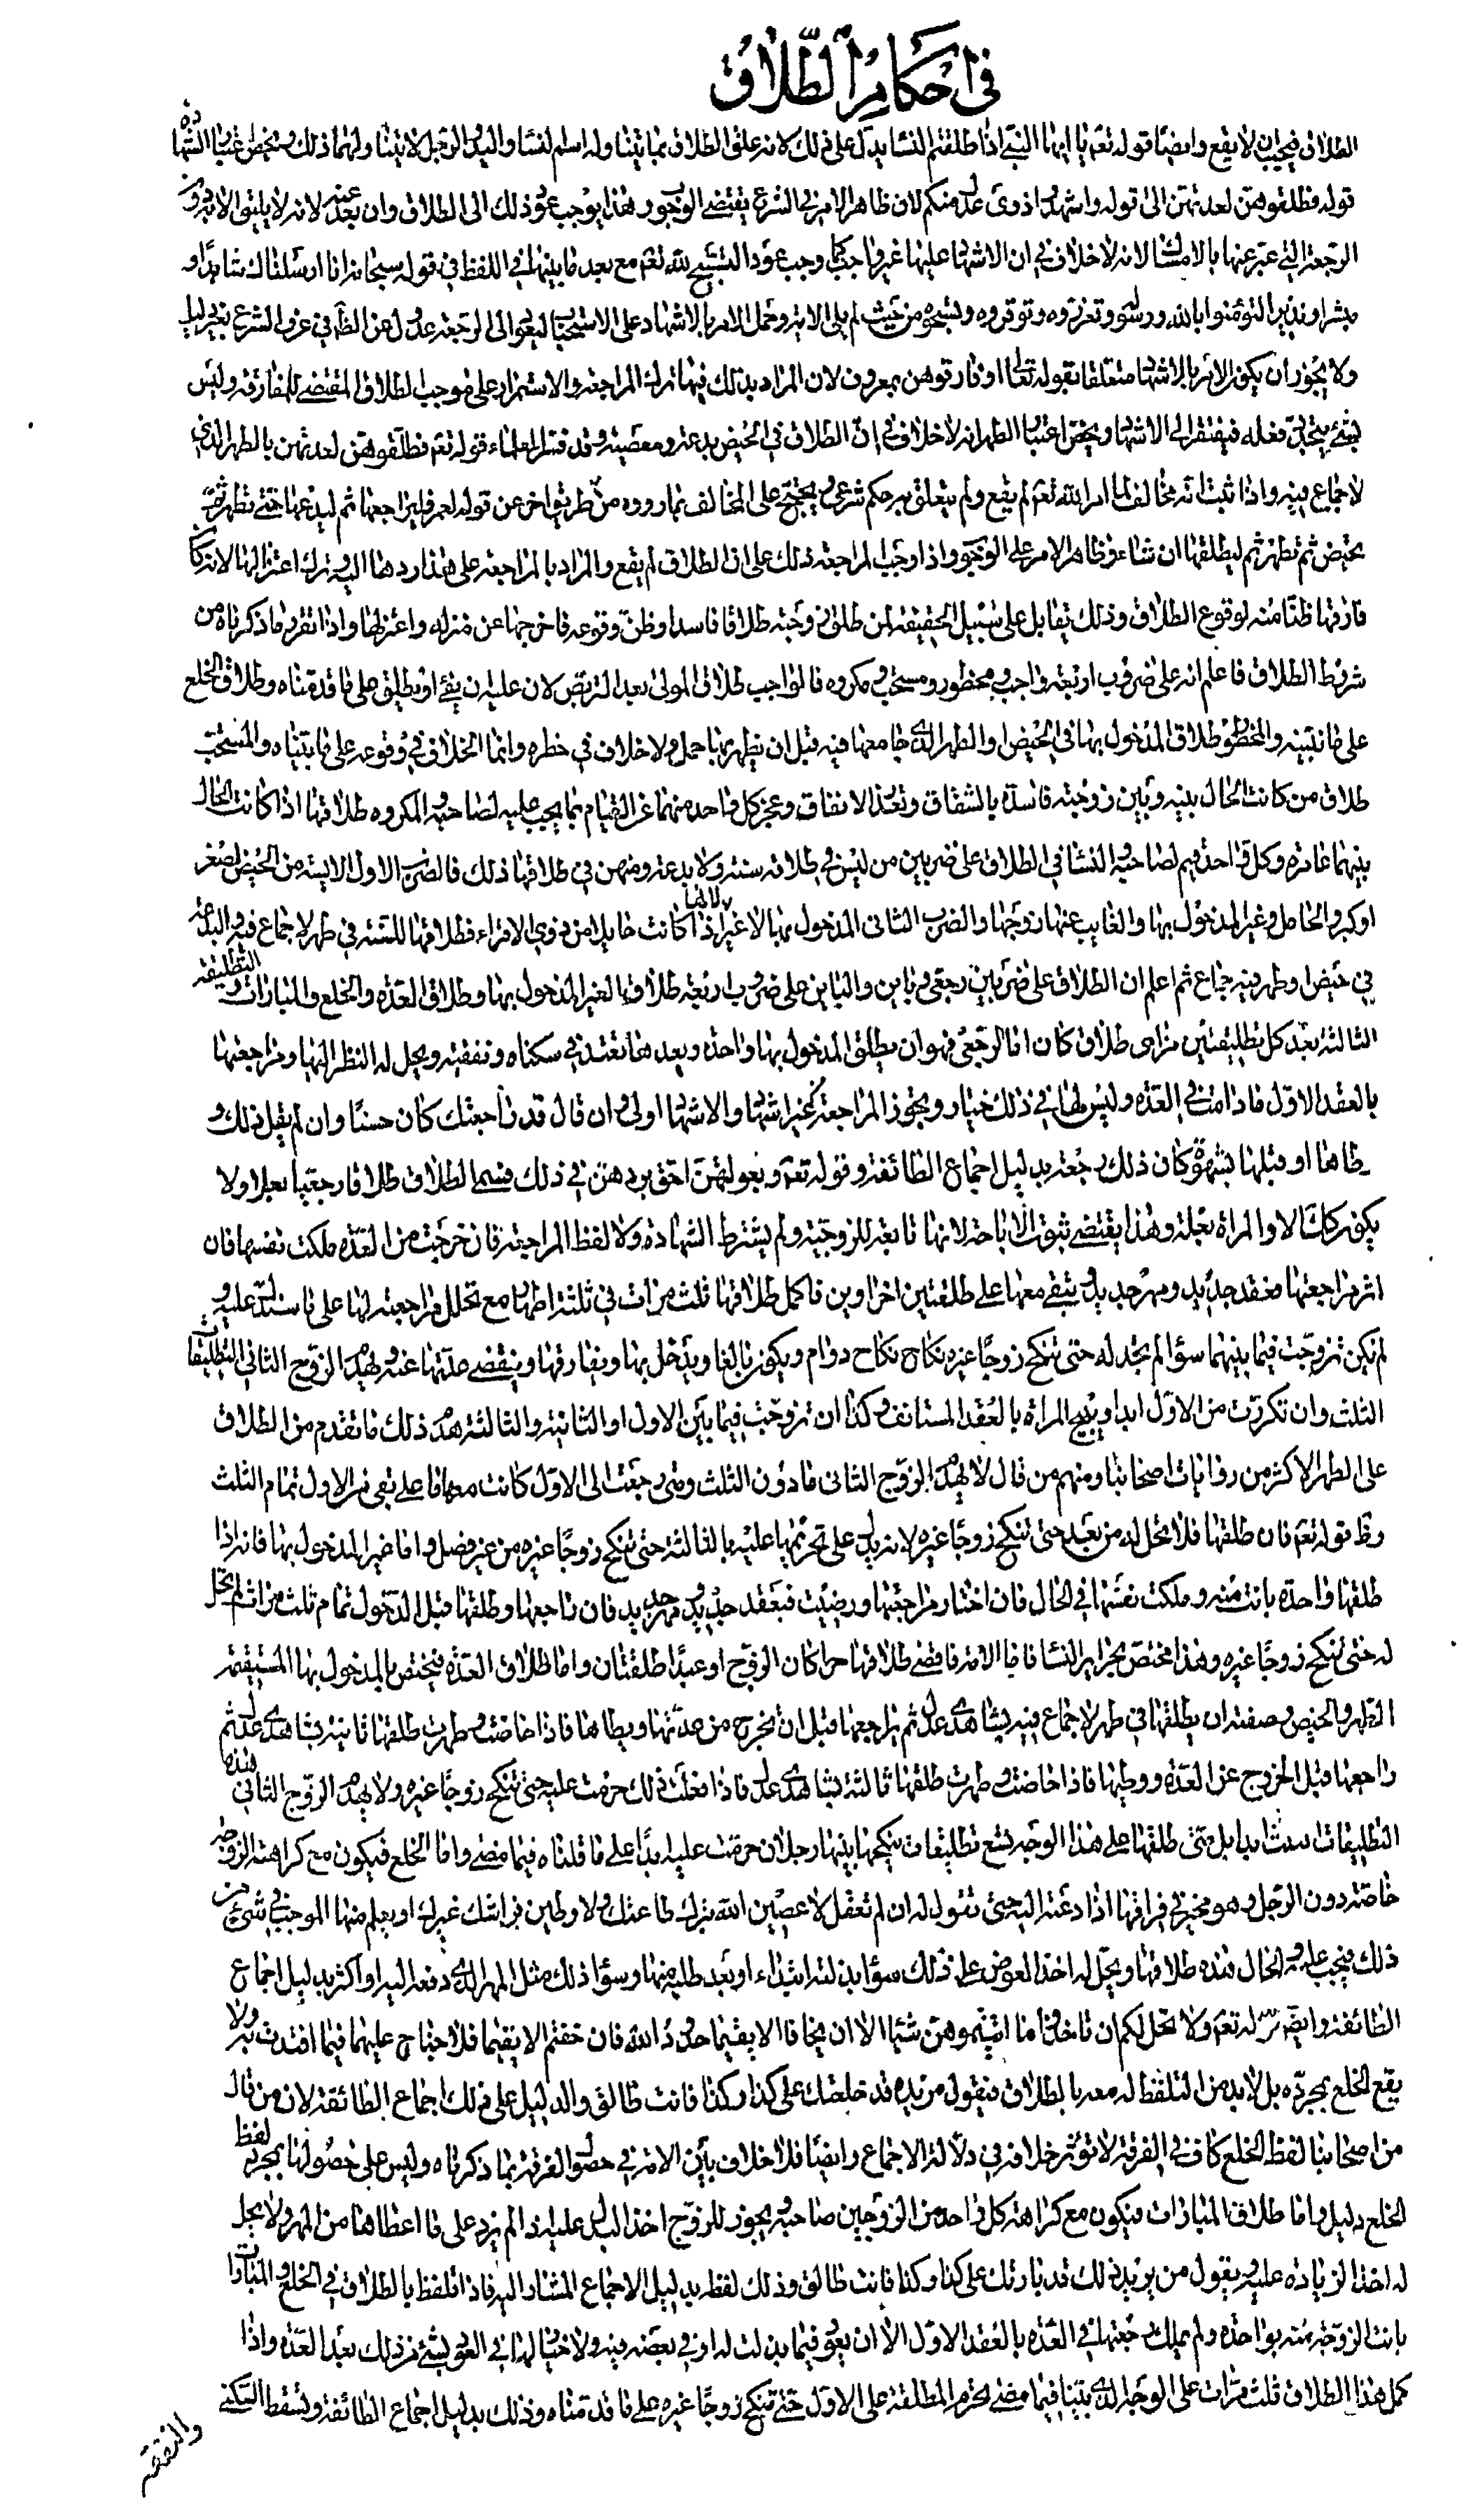 في احكام الطلاق
الطلاق فيجب ان لا يقع وايضا قوله تعم يا ايها النبي اذا طلقتم النسا يدل على ذلك لانه علق الطلاق بما بينا وله اسم النسا واليد والرجل لا يتنا ولهما ذلك ويخص اعتبار الشهادة
قوله فطلقوهن لعدتهن الى قوله واشهدوا ذوى عدل منكم لان ظاهر الامر في الشرع يقتضي الوجوب وهذا يوجب عود ذلك الى الطلاق وان بعد عنه لانه لا يليق الا به دون
الرجعة التي عبر عنها بالامساك لانه لا خلاف في ان الاشهاد عليها غير واجب كما وجب عود التسبيح لله تعم مع بعد ما بينهما في اللفظ في قوله سبحانه انا ارسلناك شاهدا و
مبشرا ونذيرا لتؤمنوا بالله ورسوله وتعزروه وتوقروه وتسبحوه من حيث لم يلق الا به وحمل الامر بالاشهاد على الاستحباب ليعود الى الرجعة عدول عن الظاهر في عرف الشرع بغير دليل
ولا يجوز ان يكون الامر بالاشهاد متعلقا بقوله تعالى او فارقوهن بمعروف لان المراد بذلك فيها ترك المراجعة والاستمرار على موجب الطلاق المقتضي للمفارقة وليس
بشيء يتجدد فعله فيفتقر الى الاشهاد ويخص اعتبار الطهر انه لا خلاف في ان الطلاق في الحيض بدعة ومعصية وقد فسر العلماء قوله تعم فطلقوهن لعدتهن بالطهر الذي
لا جماع فيه واذا ثبت انه مخالف لما امر الله تعم لم يقع ولم يتعلق به حكم شرعي ويحتج على المخالف بما رووه من طريق اخر عن قوله لعمر فليراجعها ثم ليدعها حتى تطهر ثم
تحيض ثم تطهر ثم ليطلقها ان شاء وظاهر الامر على الوجوب واذا وجب المراجعة دل ذلك على ان الطلاق لم يقع والمراد بالمراجعة على هذا ردها اليه وترك اعتزالها لانه كان
فارقها ظنا منه لوقوع الطلاق وذلك يقابل على سبيل الحقيقة لمن طلق زوجته طلاقا فاسدا وظن وقوعه فاخرجها عن منزله واعتزلها واذا تقرر ما ذكرناه من
شروط الطلاق فاعلم انه على ضروب اربعة واجب ومحظور ومستحب ومكروه فالواجب طلاق المولى بعد التربص لان عليه ان يفئ او يطلق على ما قدمناه وطلاق الخلع
على ما نبينه والمحظور طلاق المدخول بها في الحيض او الطهر الذي جامعها فيه قبل ان يظهر بها حمل ولا خلاف في حظره وانما الخلاف في وقوعه على ما بيناه والمستحب
طلاق من كانت الحال بينه وبين زوجته فاسدة بالشقاق وتعذر الاتفاق وعجز كل واحد منهما عن القيام بما يجب عليه لصاحبه والمكروه طلاقها اذا كانت الحال
بينهما عامرة وكل واحد قيم لصاحبه والنسا في الطلاق على ضربين من ليس في طلاقه سنة ولا بدعة ومنهن في طلاقها ذلك فالضرب الاول الايسة من الحيض لصغر
او كبر والحامل وغير المدخول بها والغايب عنها زوجها والضرب الثاني المدخول بها لا غير اذا كانت حايلا من ذوي الاقراء فطلاقها للسنة في طهر لا جماع فيه والبدعة
في حيض او طهر فيه جماع ثم اعلم ان الطلاق على ضربين رجعي وباين والباين على ضروب اربعة طلاق الغير المدخول بها وطلاق العدة والخلع والمبارات والتطليقة
الثالثة بعد كل تطليقتين من اي طلاق كان اما الرجعي فهو ان يطلق المدخول بها واحدة ويدعها تعتد في سكناه ونفقته ويحل له النظر اليها ومراجعتها
بالعقد الاول ما دامت في العدة وليس لها في ذلك خيار ويجوز المراجعة من غير اشهاد والاشهاد اولى وان قال قد راجعتك كان حسنا وان لم يقل ذلك و
وطاها او قبلها بشهوة كان ذلك رجعة بدليل اجماع الطائفة وقوله تعم وبعولتهن احق بردهن في ذلك فسمى المطلق طلاقا رجعيا بعلا ولا
يكون كذلك الا والمراة بعلة وهذا يقتضي ثبوت الاباحة لانها تابعة للزوجية ولم يشترط الشهادة ولا لفظ المراجعة فان خرجت من العدة ملكت نفسها فان
اثر مراجعتها فعقد جديد ومهر جديد وتبقى معها على طلقتين اخراوين فاكمل طلاقها ثلث مرات في ثلثة اطهار مع تخلل مراجعته لها على ما سندل عليه و
لم تكن تزوجت فيما بينهما سواه لم تحل له حتى تنكح زوجا غيره نكاح دوام ويكون بالغا ويدخل بها ويفارقها وينقضي عدتها عنه ويهدم الزوج الثاني التطليقات
الثلث وان تكررت من الاول ابدا ويبيح المراة بالعقد المستانف وكذا ان تزوجت فيما بين الاول او الثانية والثالثة هدم ذلك ما تقدم من الطلاق
على الطهر الاكثر من روايات اصحابنا ومنهم من قال لا يهدم الزوج الثاني ما دون الثلث ومتى رجعت الى الاول كانت معه على ما بقى من الاول تمام الثلث
وظ قوله تعم فان طلقها فلا تحل له من بعد حتى تنكح زوجا غيره لانه يدل على تحريمها عليه بالثالثة حتى تنكح زوجا غيره من غير فصل واما غير المدخول بها فانه اذا
طلقها واحدة بانت منه وملكت نفسها في الحال فان اختار مراجعتها ورضيت فبعقد جديد ومهر جديد فان راجعها وطلقها قبل الدخول تمام ثلث مرات لم تحل
له حتى تنكح زوجا غيره وهذا مختص بحراير النسا فاما الامة فاقصى طلاقها حرا كان الزوج او عبدا طلقتان واما طلاق العدة فيختص بالمدخول بها المستقيمة
الطهر والحيض وصفته ان يطلقها في طهر لا جماع فيه بشاهدي عدل ثم يراجعها قبل ان تخرج من عدتها ويطاها فاذا حاضت وطهرت طلقها ثانية بشاهدي عدل ثم
راجعها قبل الخروج عن العدة ووطيها فاذا حاضت وطهرت طلقها ثالثة بشاهدي عدل فاذا فعلت ذلك حرمت عليه حتى تنكح زوجا غيره ولا يهدم الزوج الثاني هذه
التطليقات الثلث ابدا بل متى طلقها على هذا الوجه تسع تطليقات ينكحها بينها رجلان حرمت عليه ابدا على ما قلناه فيما مضى واما الخلع فيكون مع كراهة الزوجة
خاصة دون الرجل وهو مخير في فراقها اذا دعته اليه حتى تقول له ان لم تفعل لاعصين الله بترك طاعتك ولاوطين فراشك غيرك او يعلم منها الموجب في شيء من
ذلك فيجب عليه والحال هذه طلاقها ويحل له اخذ العوض على ذلك سوا بذلته ابتداء او بعد طلبه منها وسوا ذلك مثل المهر الذي دفعه اليها او اكثر بدليل اجماع
الطائفة وايضا قوله تعم ولا يحل لكم ان تاخذوا مما اتيتموهن شيئا الا ان يخافا الا يقيما حدود الله فان خفتم الا يقيما فلا جناح عليهما فيما افتدت به ولا
يقع الخلع بمجرده بل لابد من التلفظ له معه بالطلاق فيقول مريده قد خلعتك على كذا وكذا فانت طالق والدليل على ذلك اجماع الطائفة لان من قال
من اصحابنا لفظ الخلع كاف في الفرقة لا تؤثر خلافه في دلالة الاجماع وايضا فلا خلاف بين الامة في حصول الفرقة بما ذكرناه وليس على حصولها بمجرد لفظ
الخلع دليل واما طلاق المبارات فيكون مع كراهة كل واحد من الزوجين صاحبه ويجوز للزوج اخذ البدل عليه اذا لم يزد على ما اعطاها من المهر ولا يحل
له اخذ الزيادة عليه ويقول من يريد ذلك قد بارئتك على كذا وكذا فانت طالق وذلك لفظه بدليل الاجماع المشار اليه فاذا تلفظ بالطلاق في الخلع والمبارات
بانت الزوجة منه بواحدة ولم يملك رجعتها في العدة بالعقد الاول الا ان يعود فيما بذلت له او في بعضه فيه ولا خيار لها في العود بشيء من ذلك بعد العدة واذا
كمل هذا الطلاق ثلث مرات على الوجه الذي بينا فيما مضى لحرم المطلقة على الاول حتى تنكح زوجا غيره على ما قدمناه وذلك بدليل اجماع الطائفة وتسقط السكنى
والنفقة